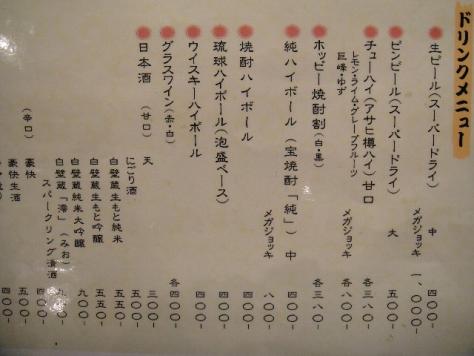 ドリンクメニュー
生ビール（スーパードライ）　中　四〇〇-
メガジョッキ　一、〇〇〇-
ビンビール（スーパードライ）　大　五五〇-
チューハイ（アサヒ樽ハイ）甘口　各三八〇-
レモン・ライム・グレープフルーツ
巨峰・ゆず　メガジョッキ　各八〇〇-
ホッピー焼酎割（白・黒）　各三八〇-
純ハイボール（宝焼酎「純」）　中　四〇〇-
メガジョッキ　八〇〇-
焼酎ハイボール　四〇〇-
琉球ハイボール（泡盛ベース）　四〇〇-
ウイスキーハイボール　四〇〇-
グラスワイン（赤・白）　各四〇〇-
日本酒（甘口）　天　三〇〇-
にごり酒　五〇〇-
白壁蔵生もと純米　五五〇-
白壁蔵生もと吟醸　五五〇-
白壁蔵純米大吟醸　九〇〇-
白壁蔵「澪」（みお）
スパークリング清酒
（辛口）　豪快　四〇〇-
豪快生酒